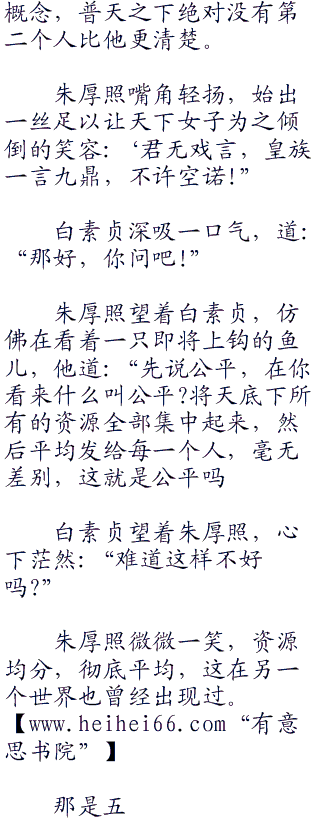 概念，普天之下绝对没有第
二个人比他更清楚。
朱厚照嘴角轻扬，始出
一丝足以让天下女子为之倾
倒的笑容：‘君无戏言，皇族
一言九鼎，不许空诺！”
白素贞深吸一口气，道：
“那好，你问吧！”
朱厚照望着白素贞，仿
佛在看着一只即将上钩的鱼
儿，他道：“先说公平，在你
看来什么叫公平？将天底下所
有的资源全部集中起来，然
后平均发给每一个人，毫无
差别，这就是公平吗
白素贞望着朱厚照，心
下茫然：“难道这样不好
吗？”
朱厚照微微一笑，资源
均分，彻底平均，这在另一
个世界也曾经出现过。
【www.heihei66.com“有意
思书院”】
那是五